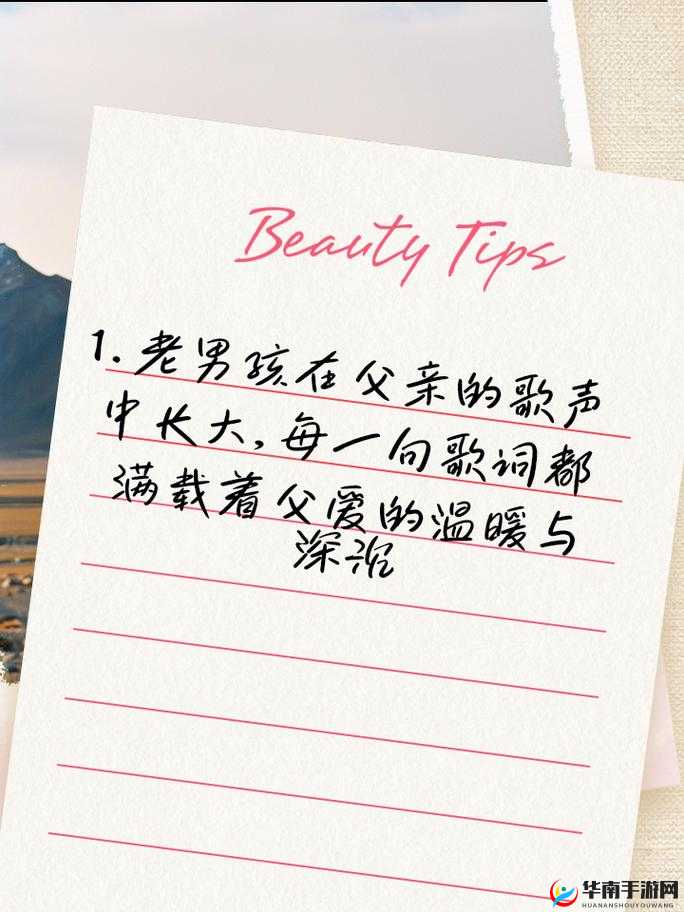 Beauty Tips
1. 老男孩在父亲的歌声
中长大,每一句歌词都
满载着父爱的温暖与
深沉
华南手游网
HUANANSHOUYOUWANG